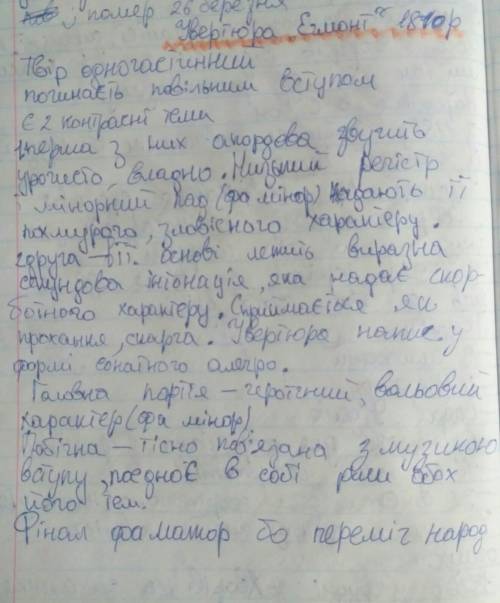 помер 26 березня
Увертюра "Егмонт" 1810р
Твір одночастинний
починаєть повільним вступом
Є 2 контрасні теми
1перша з них акордова звучить
урочисто, владно. Низький регістр
і мінорний лад (фа мінор) надають її
похмурого, зловісного характеру.
2друга – її основі лежить виразна
секундова інтонація, яка надає скор-
ботного характеру. Сприймається як
прохання, скарга. Увертюра напис. у
формі сонатного алегро.
Головна партія – героїчний, вольовий
характер (фа мінор).
Побічна – тісно пов'язана з музикою
вступу, поєднює в собі риси обох
його тем.
Фінал фа мажор бо переміг народ